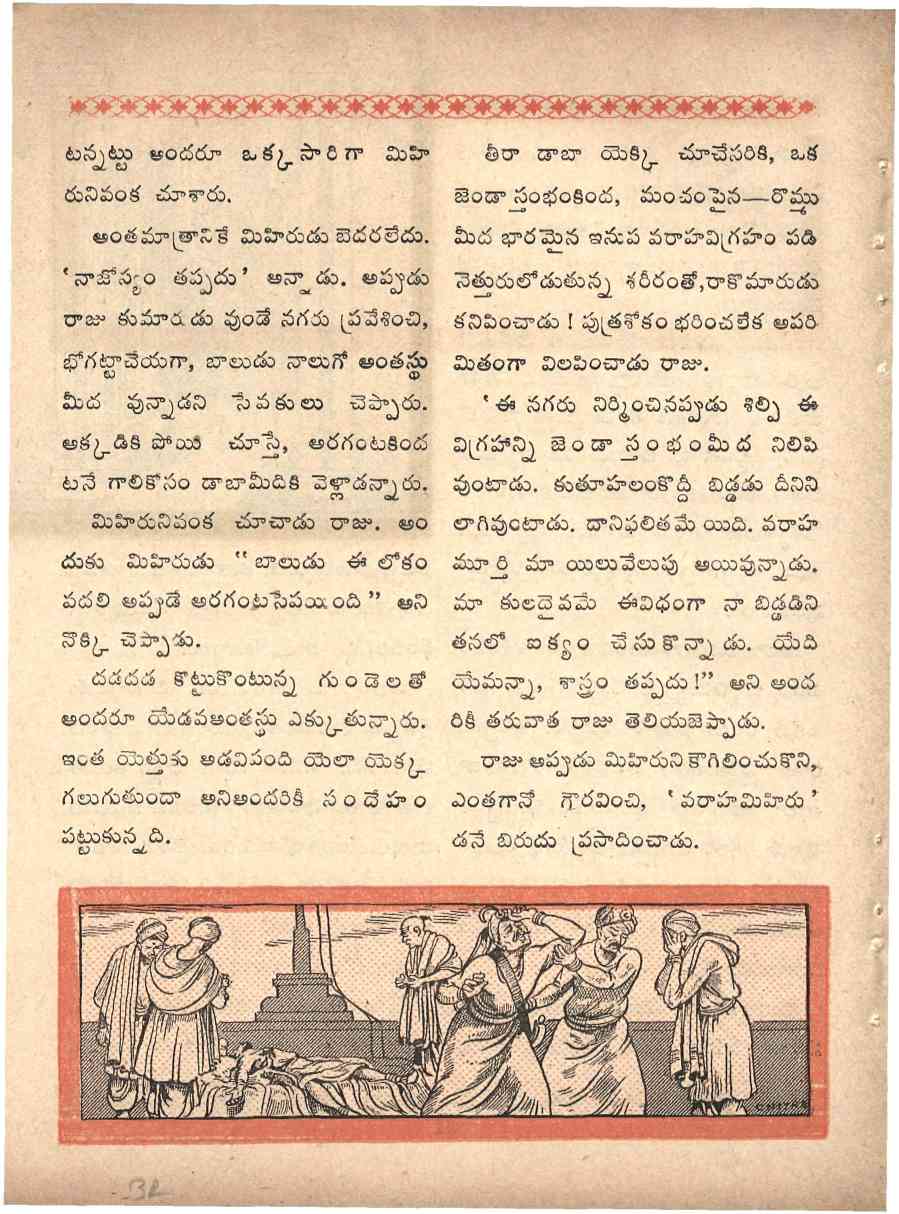 టన్నట్టు అందరూ ఒక్కసారిగా మిహి
రునివంక చూశారు.
అంతమాత్రానికే మిహిరుడు బెదరలేదు.
‘నాజోస్యం తప్పదు’ అన్నాడు. అప్పుడు
రాజు కుమారుడు వుండే నగరు ప్రవేశించి,
భోగట్టాచేయగా, బాలుడు నాలుగో అంతస్థు
మీద వున్నాడని సేవకులు చెప్పారు.
అక్కడికి పోయి చూస్తే, అరగంటకింద
టనే గాలికోసం డాబామీదికి వెళ్లాడన్నారు.
మిహిరునివంక చూచాడు రాజు. అం
దుకు మిహిరుడు “బాలుడు ఈ లోకం
వదలి అప్పుడే అరగంటసేపయింది” అని
నొక్కి చెప్పాడు.
దడదడ కొట్టుకొంటున్న గుండెలతో
అందరూ యేడవఅంతస్థు ఎక్కుతున్నారు.
ఇంత యెత్తుకు అడవిపంది యెలా యెక్క
గలుగుతుందా అనిఅందరికీ సందేహం
పట్టుకున్నది.
తీరా డాబా యెక్కి చూచేసరికి, ఒక
జెండా స్తంభంకింద, మంచంపైన—రొమ్ము
మీద భారమైన ఇనుప వరాహవిగ్రహం పడి
నెత్తురులోడుతున్న శరీరంతో,రాకొమారుడు
కనిపించాడు ! పుత్రశోకం భరించలేక అపరి
మితంగా విలపించాడు రాజు.
‘ఈ నగరు నిర్మించినప్పుడు శిల్పి ఈ
విగ్రహాన్ని జెండా స్తంభంమీద నిలిపి
వుంటాడు. కుతూహలంకొద్దీ బిడ్డడు దీనిని
లాగివుంటాడు. దానిఫలితమే యిది. వరాహ
మూర్తి మా యిలువేలుపు అయివున్నాడు.
మా కులదైవమే ఈవిధంగా నా బిడ్డడిని
తనలో ఐక్యం చేసుకొన్నాడు. యేది
యేమన్నా, శాస్త్రం తప్పదు!” అని అంద
రికీ తరువాత రాజు తెలియజెప్పాడు.
రాజు అప్పుడు మిహిరుని కౌగిలించుకొని,
ఎంతగానో గౌరవించి, ‘వరాహమిహిరు’
డనే బిరుదు ప్రసాదించాడు.